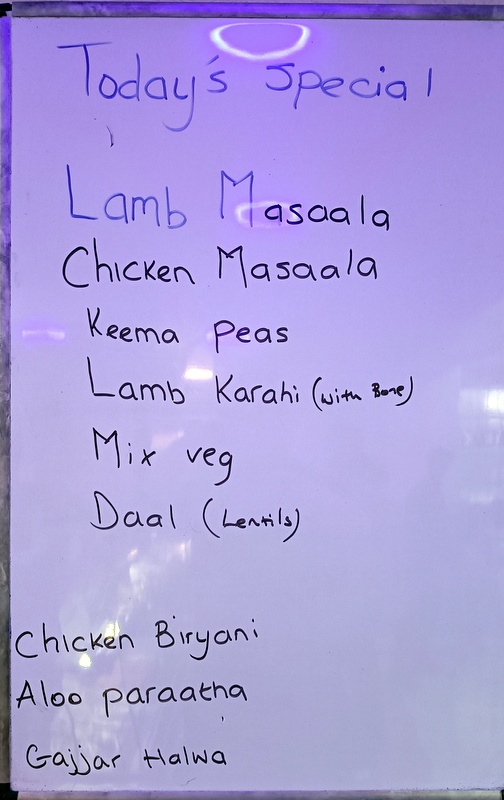 Today's Special
Lamb Masaala
Chicken Masaala
Keema Peas
Lamb Karahi (with Bone)
Mix veg
Daal (Lentils)
Chicken Biryani
Aloo paraatha
Gajjar Halwa